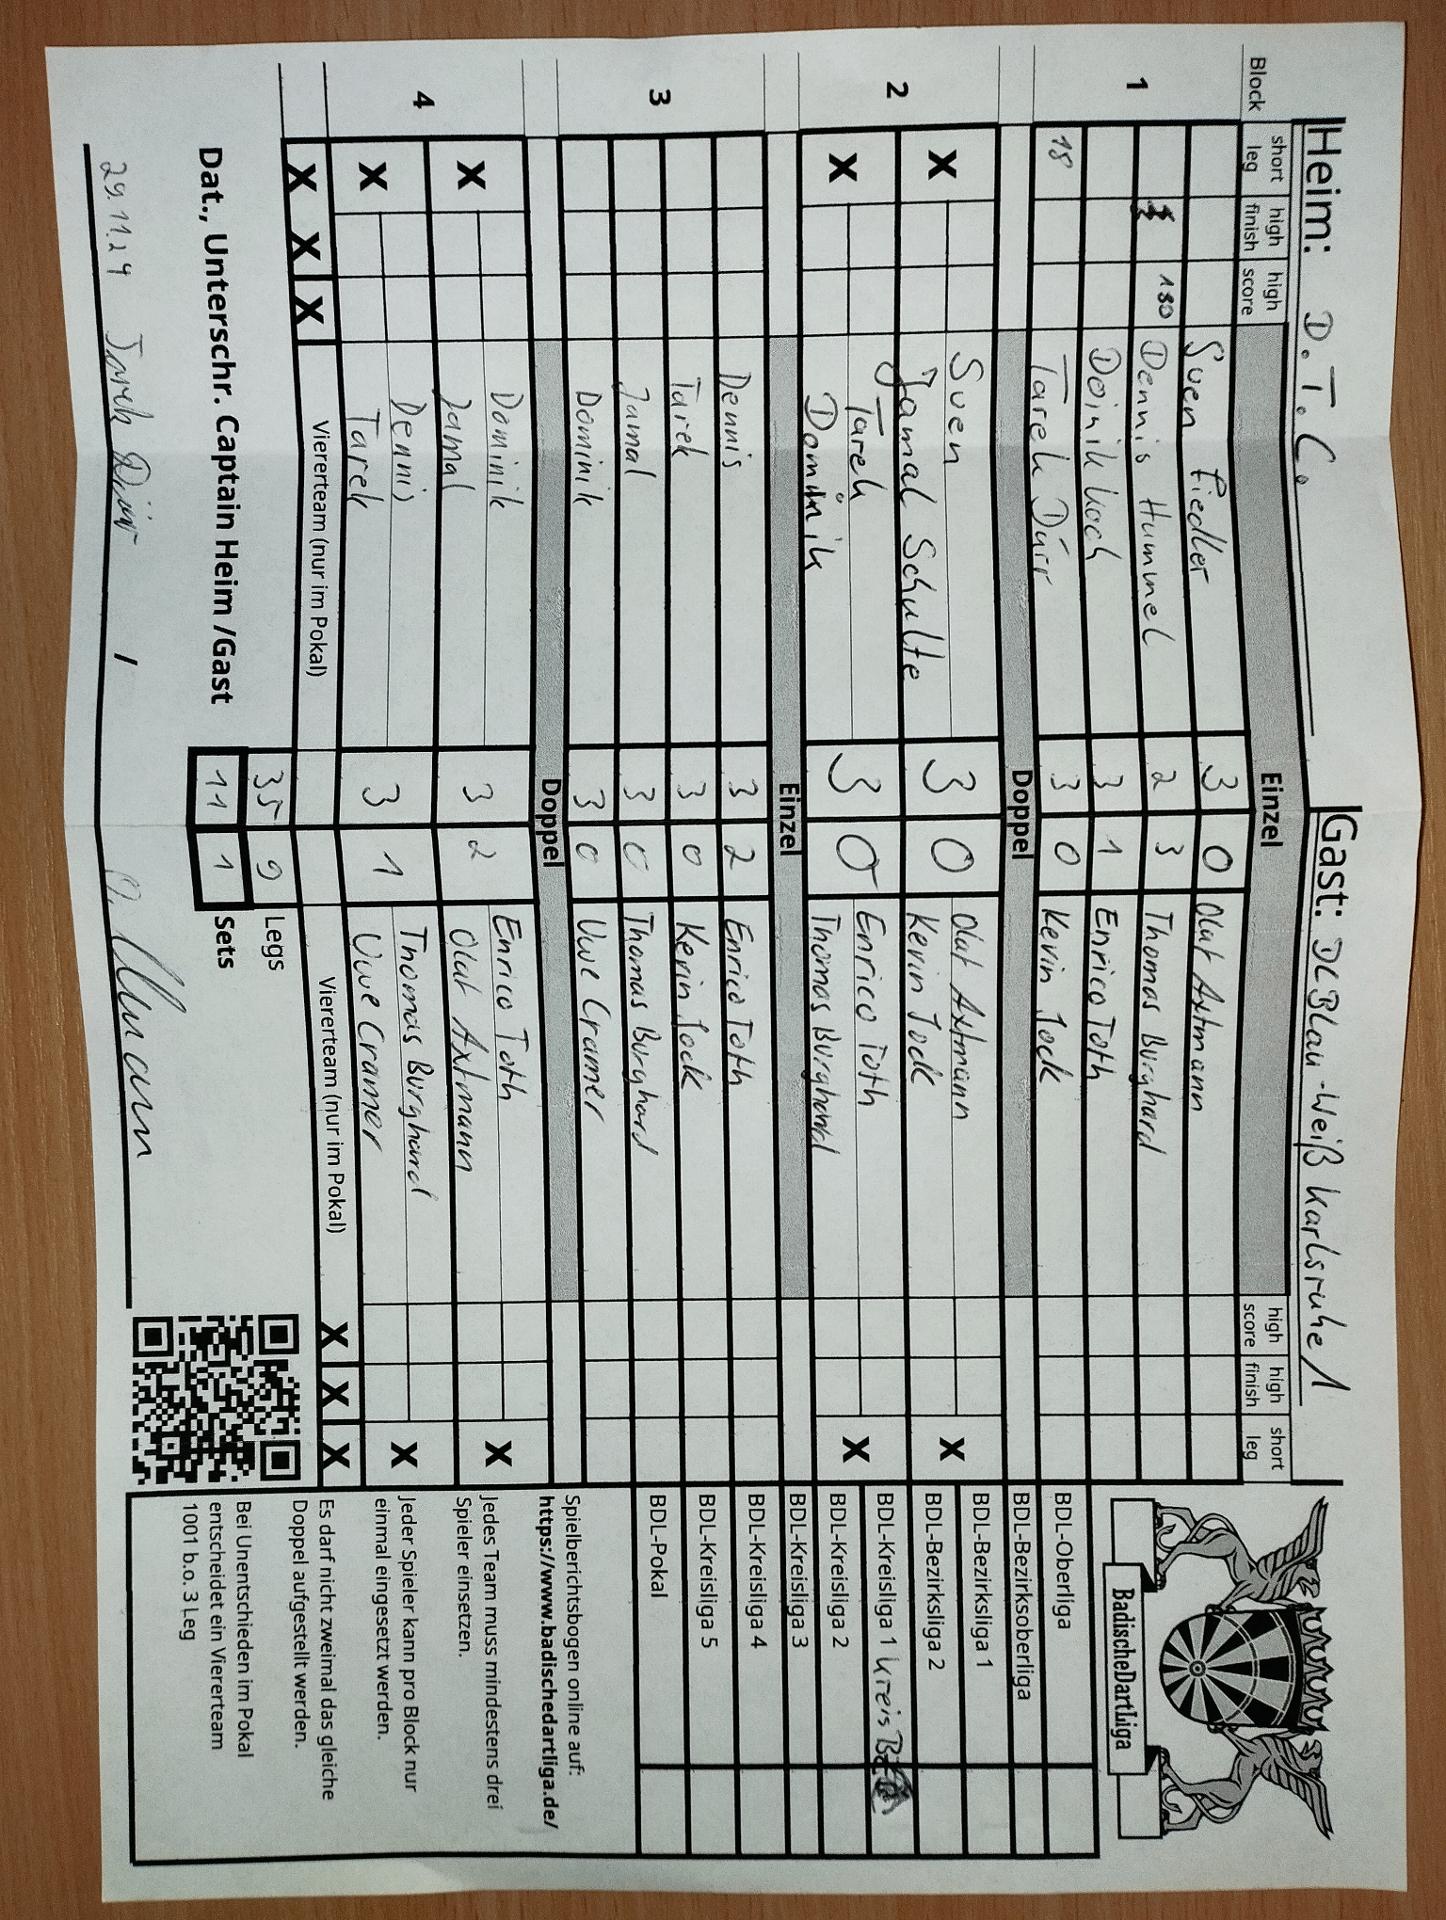 Heim: D.T.C.
Gast: DC Blau-Weiß Karlsruhe 1
Block short leg high finish high score Einzel high score high finish short leg
1
Sven Fiedler 3 0 Olaf Axtmann
180 Dennis Hummel 2 3 Thomas Burghard
Doinik Koch 3 1 Enrico Toth
18 Tarek Dürr 3 0 Kevin Jock
Doppel
2
X Sven 3 0 Olaf Axtmann X
Jamal Schulte Kevin Jock
X Tarek 3 0 Enrico Toth X
Dominik Thomas Burghard
Einzel
3
Dennis 3 2 Enrico Toth
Tarek 3 0 Kevin Jock
Jamal 3 0 Thomas Burghard
Dominik 3 0 Uwe Cramer
Doppel
4
X Dominik 3 2 Enrico Toth X
Jamal Olaf Axtmann
X Dennis 3 1 Thomas Burghard X
Tarek Uwe Cramer
X X X Viererteam (nur im Pokal) Viererteam (nur im Pokal) X X X
35 9 Legs
Dat., Unterschr. Captain Heim /Gast 11 1 Sets
29.11.24 Tarek Dürr /
BadischeDartLiga
BDL-Oberliga
BDL-Bezirksoberliga
BDL-Bezirksliga 1
BDL-Bezirksliga 2
BDL-Kreisliga 1 Kreis B
BDL-Kreisliga 2
BDL-Kreisliga 3
BDL-Kreisliga 4
BDL-Kreisliga 5
BDL-Pokal
Spielberichtsbogen online auf:
https://www.badischedartliga.de/
Jedes Team muss mindestens drei
Spieler einsetzen.
Jeder Spieler kann pro Block nur
einmal eingesetzt werden.
Es darf nicht zweimal das gleiche
Doppel aufgestellt werden.
Bei Unentschieden im Pokal
entscheidet ein Viererteam
1001 b.o. 3 Leg